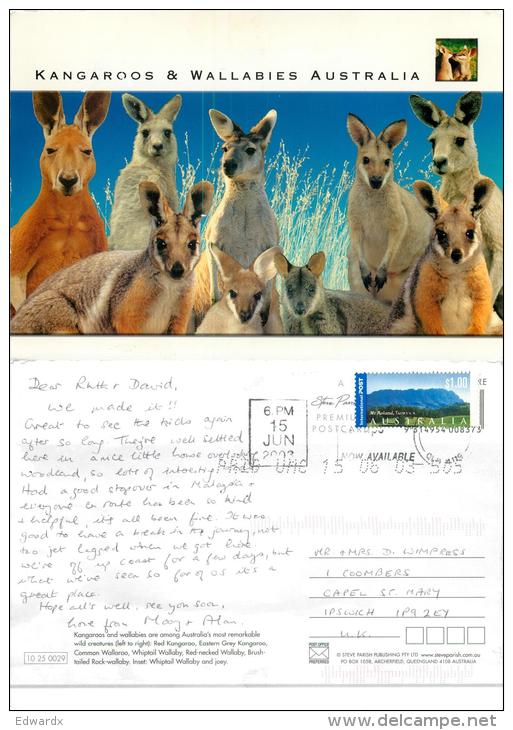 KANGAROOS & WALLABIES AUSTRALIA
Dear Ruth & David,
We made it!!
Great to see the kids again
after so long. They're well settled
here in a nice little house over
woodland, so lots of
Had a good stopover in Malaysia &
everyone en route has been so kind
& helpful, it's all been fine. It was
good to have a break in the journey, not
too jet lagged when we got here.
We're off up coast for a few days, but
what we've seen so far of Oz it's a
great place.
Hope all's well, see you soon,
love from Mary & Alan.
6. PM
15
JUN
2003
A
Steve Parish
PREMIUM
POSTCARDS
NOW AVAILABLE
International POST
$1.00
Mt Roland, Tasmania
AUSTRALIA
9 314954 008373
15 06 03
MR & MRS. D. WIMPRESS
1 COOMBERS
CAPEL ST. MARY
IPSWICH IP9 2EY
U.K.
Kangaroos and wallabies are among Australia's most remarkable
wild creatures (left to right): Red Kangaroo, Eastern Grey Kangaroo,
Common Wallaroo, Whiptail Wallaby, Red-necked Wallaby, Brush-
tailed Rock-wallaby. Inset: Whiptail Wallaby and joey.
10 25 0029
POST OFFICE
PREFERRED
© STEVE PARISH PUBLISHING PTY LTD www.steveparish.com.au
PO BOX 1058, ARCHERFIELD, QUEENSLAND 4108 AUSTRALIA
Edwardx
http://www.delcampe.net